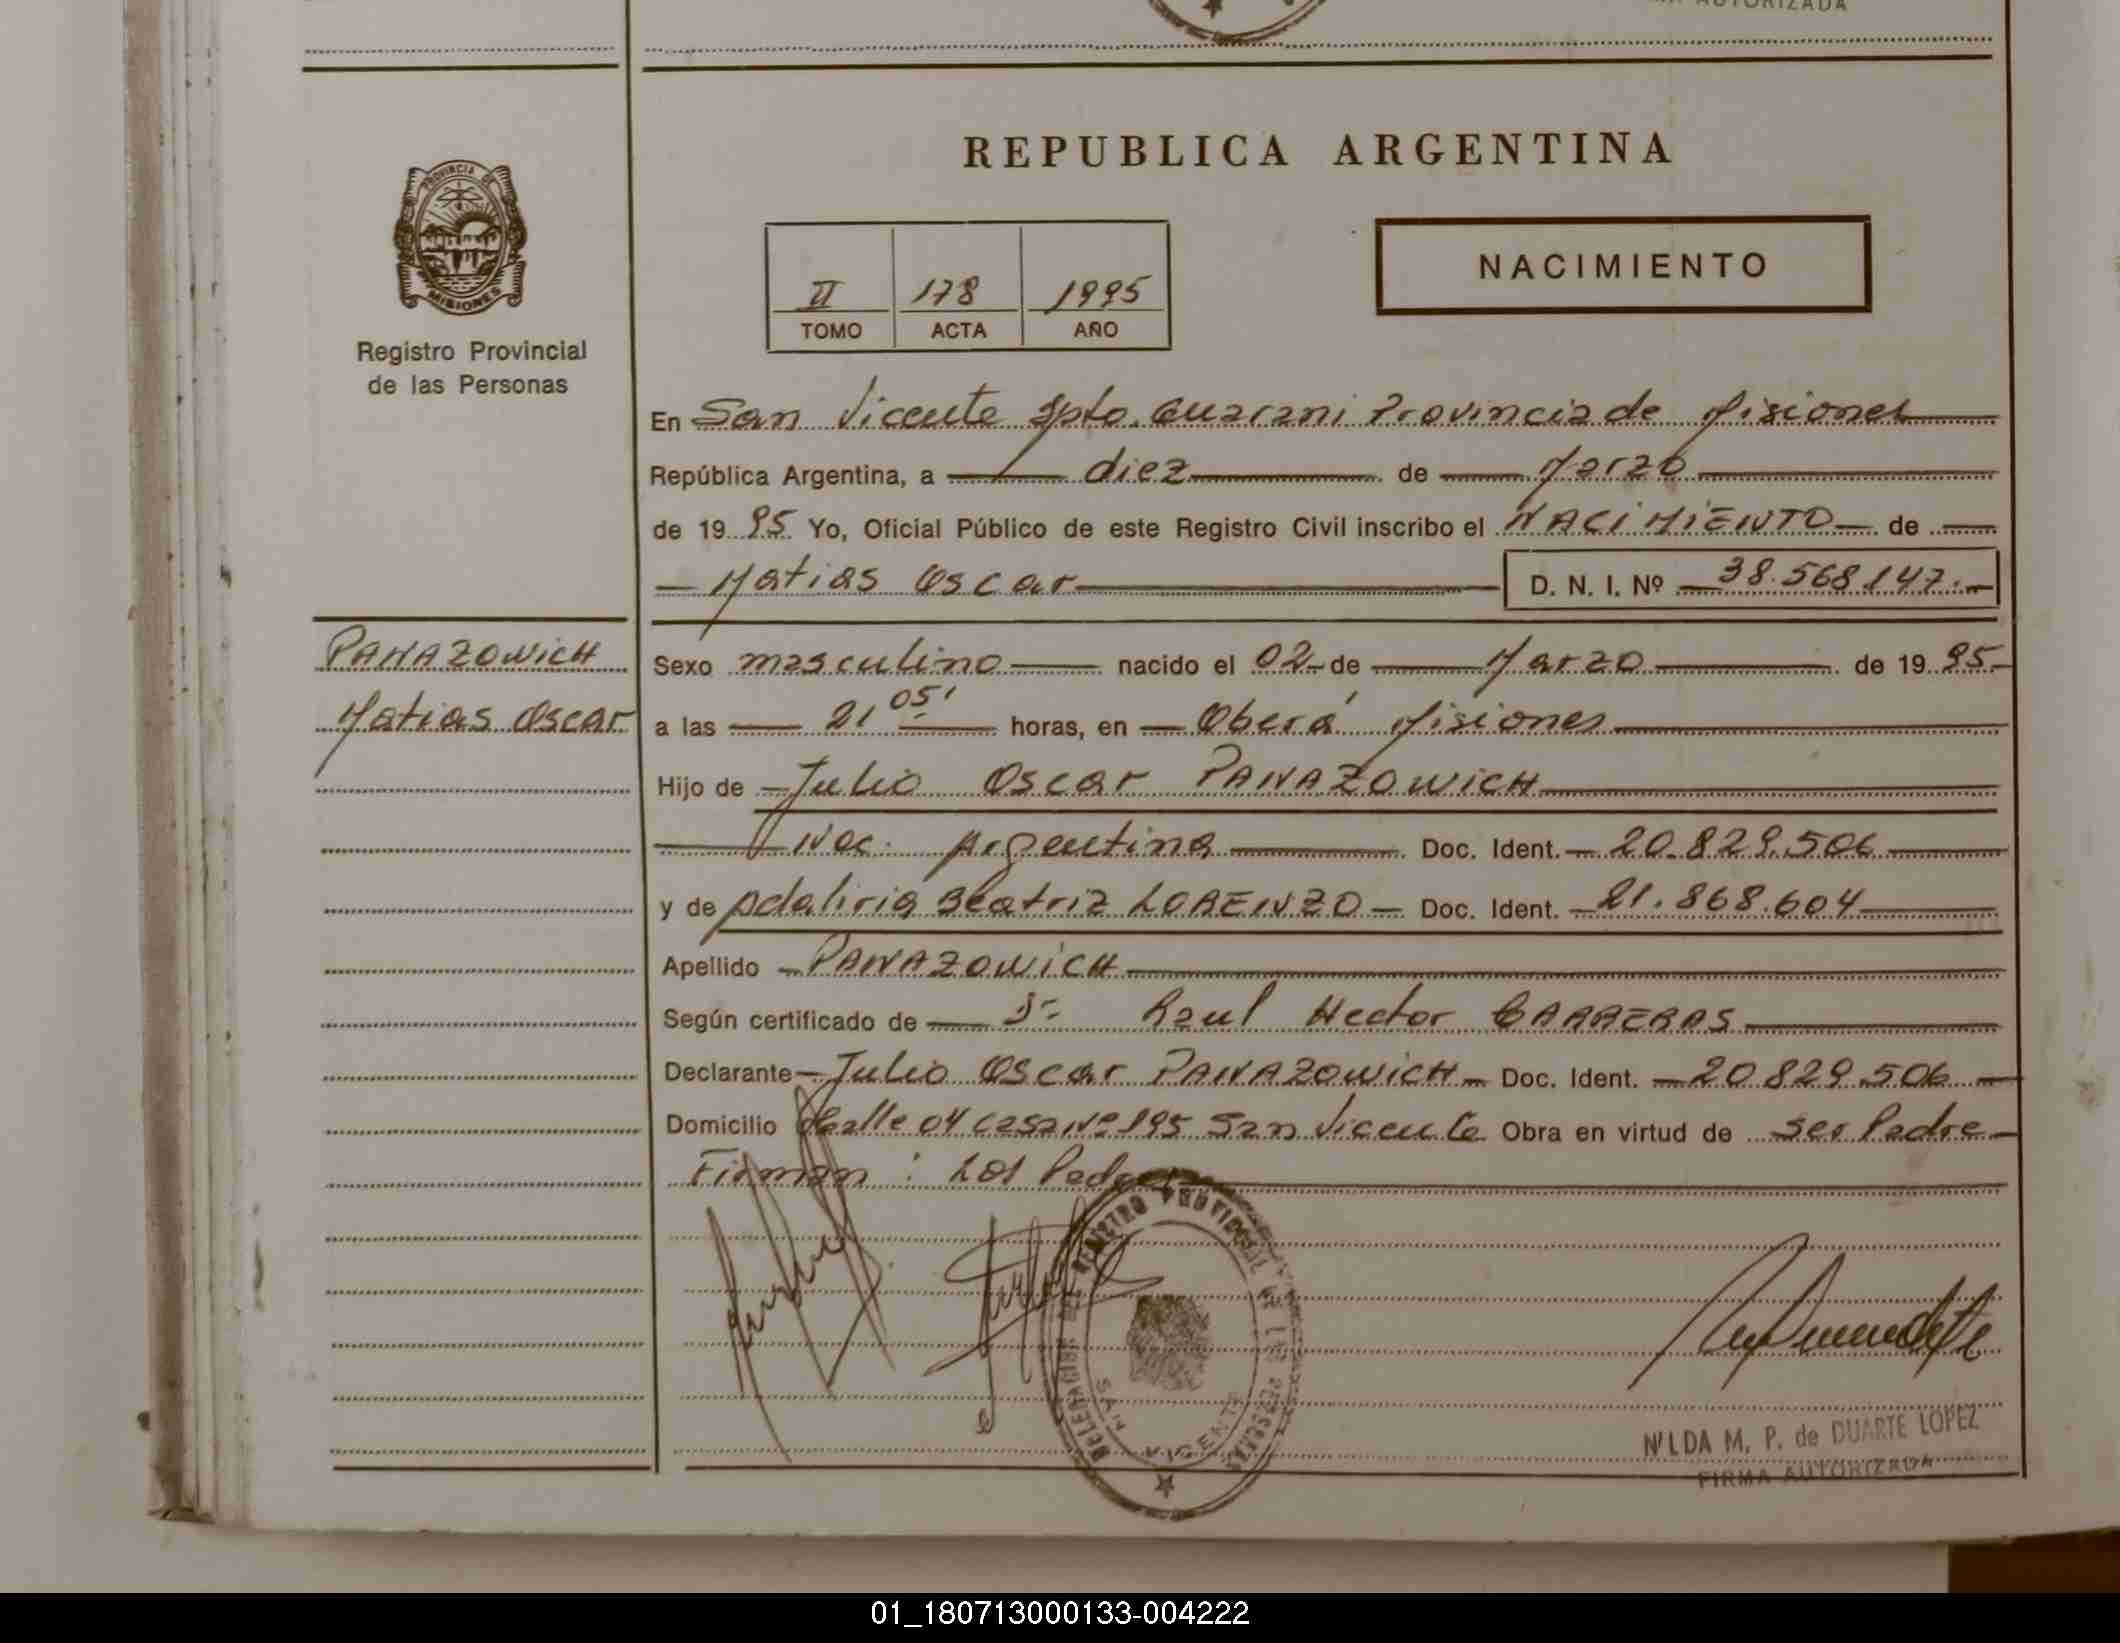 FIRMA AUTORIZADA
REPUBLICA ARGENTINA
PROVINCIA DE
MISIONES
Registro Provincial
de las Personas
NACIMIENTO
II 178 1995
TOMO ACTA AÑO
En San Vicente Dpto. Guarani Provincia de Misiones
República Argentina, a diez de Marzo
de 1995 Yo, Oficial Público de este Registro Civil inscribo el NACIMIENTO de
Matias Oscar D. N. I. Nº 38.568.147.-
PANAZOWICH
Matias Oscar
Sexo masculino nacido el 02 de Marzo de 1995
a las 21 05' horas, en Oberá Misiones
Hijo de Julio Oscar PANAZOWICH
Nac. Argentina Doc. Ident. 20.829.506
y de Adaliria Beatriz LORENZO Doc. Ident. 21.868.604
Apellido PANAZOWICH
Según certificado de Dr Raul Hector CARRERAS
Declarante Julio Oscar PANAZOWICH Doc. Ident. 20.829.506
Domicilio Calle 04 casa Nº 195 San Vicente Obra en virtud de ser Padre
Firman : Los Padres
DELEGACION DEL REGISTRO PROVINCIAL DE LAS PERSONAS
SAN VICENTE
NILDA M. P. de DUARTE LOPEZ
FIRMA AUTORIZADA
01_180713000133-004222